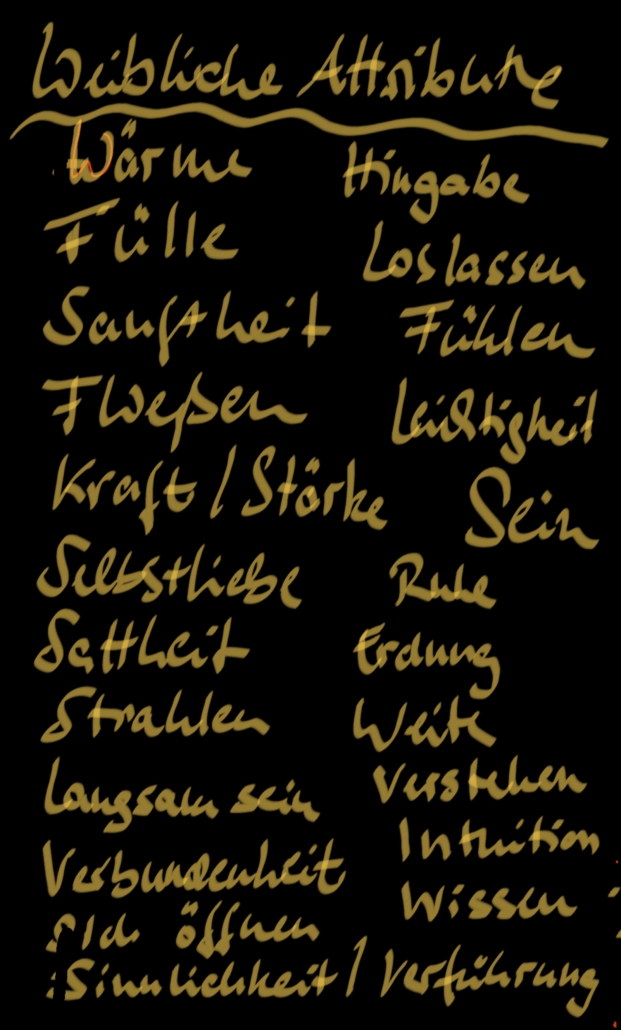 Weibliche Attribute
Wärme
Fülle
Sanftheit
Fließen
Kraft / Stärke
Selbstliebe
Sattheit
Strahlen
Langsam sein
Verbundenheit
sich öffnen
Sinnlichkeit / Verführung
Hingabe
Loslassen
Fühlen
Leichtigkeit
Sein
Ruhe
Erdung
Weite
Verstehen
Intuition
Wissen